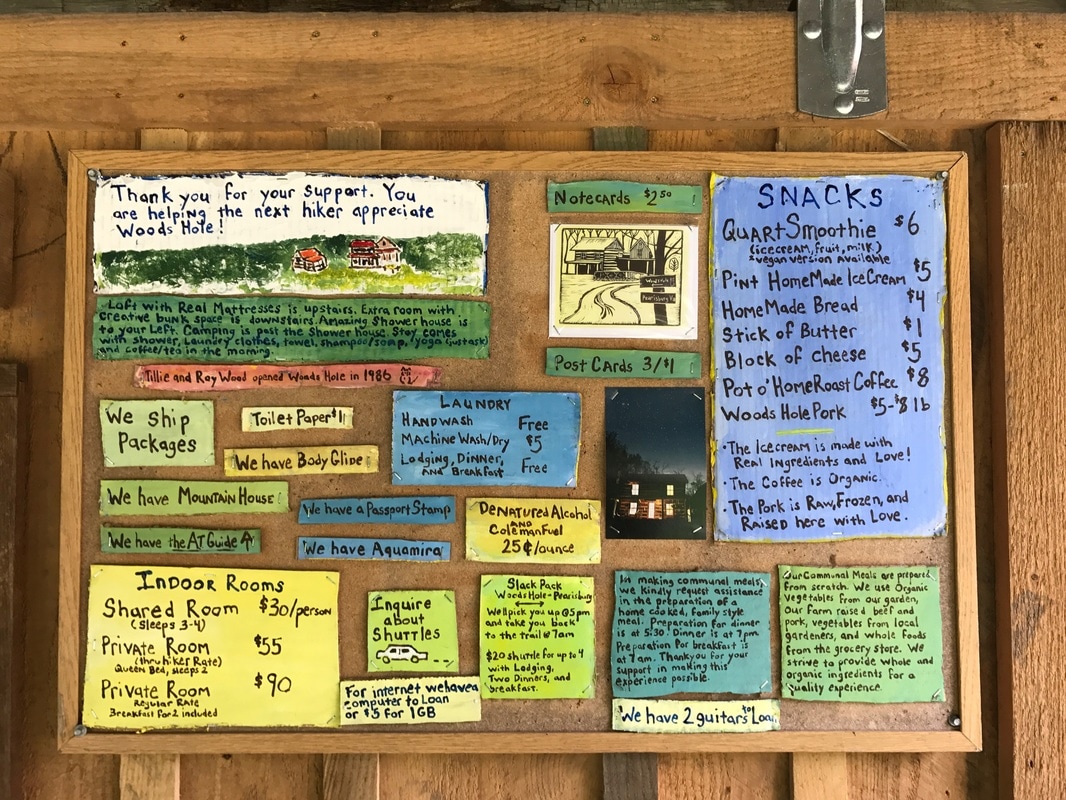 Thank you for your support. You
are helping the next hiker appreciate
Woods Hole!
Loft with Real Mattresses is upstairs. Extra room with
creative bunk space is downstairs. Amazing Shower house is
to your Left. Camping is past the Shower house. Stay comes
with shower, Laundry clothes, towel, shampoo/soap, yoga (just ask)
and coffee/tea in the morning.
Tillie and Roy Wood opened Woods Hole in 1986
We Ship
Packages
Toilet Paper $1
We have Body Glide
We have Mountain House
We have the AT Guide
LAUNDRY
HANDWASH Free
MACHINE WASH/DRY $5
Lodging, Dinner,
AND Breakfast Free
We have a Passport Stamp
We have Aquamira
DENATURED Alcohol
AND
Coleman Fuel
25¢/ounce
Notecards $2 50
Woods Hole
Pearisburg Va
Post Cards 3/$1
SNACKS
QUART Smoothie $6
(icecream, fruit, milk)
*vegan version available
Pint HomeMade IceCream $5
HomeMade Bread $4
Stick of Butter $1
Block of cheese $5
Pot o' HomeRoast Coffee $8
Woods Hole Pork $5-$8 lb
• The Icecream is made with
Real Ingredients and Love!
• The Coffee is Organic.
• The Pork is Raw, Frozen, and
Raised here with Love.
INDOOR ROOMS
Shared Room $30/person
(Sleeps 3-4)
Private Room $55
(thru hiker Rate)
Queen Bed, sleeps 2
Private Room $90
Regular Rate
Breakfast for 2 included
Inquire
about
Shuttles
For internet we have a
computer to Loan
or $5 for 1GB
Slack Pack
Woods Hole - Pearisburg
We'll pick you up @5pm
and take you back
to the trail @ 7am
$20 shuttle for up to 4
with Lodging,
Two Dinners, and
breakfast.
In making communal meals,
we kindly request assistance
in the preparation of a
home cooked, family style
meal. Preparation for dinner
is at 5:30. Dinner is at 7pm.
Preparation for breakfast is
at 7am. Thank you for your
support in making this
experience possible.
We have 2 guitars to Loan.
Our Communal Meals are prepared
from scratch. We use Organic
Vegetables from our garden,
Our farm raised beef and
pork, vegetables from local
gardeners, and whole foods
from the grocery store. We
strive to provide whole and
organic ingredients for a
quality experience.